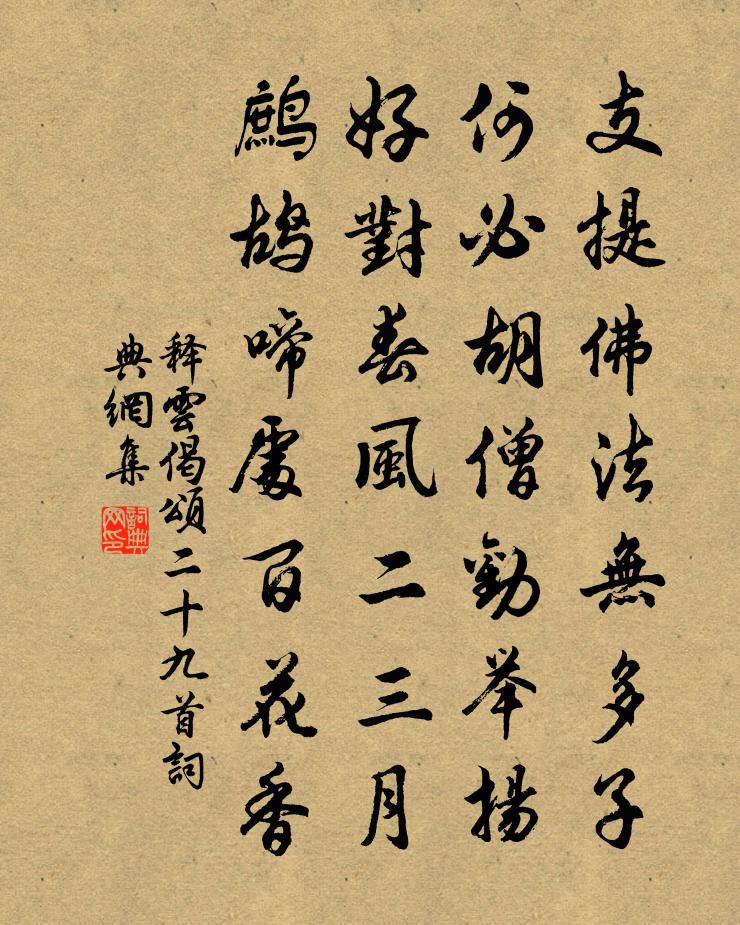 支提佛法無多子
何必胡僧勸举揚
好對春風二三月
鷓鴣啼處百花香
释雲偈頌二十九首詞
典網集
詞典网印